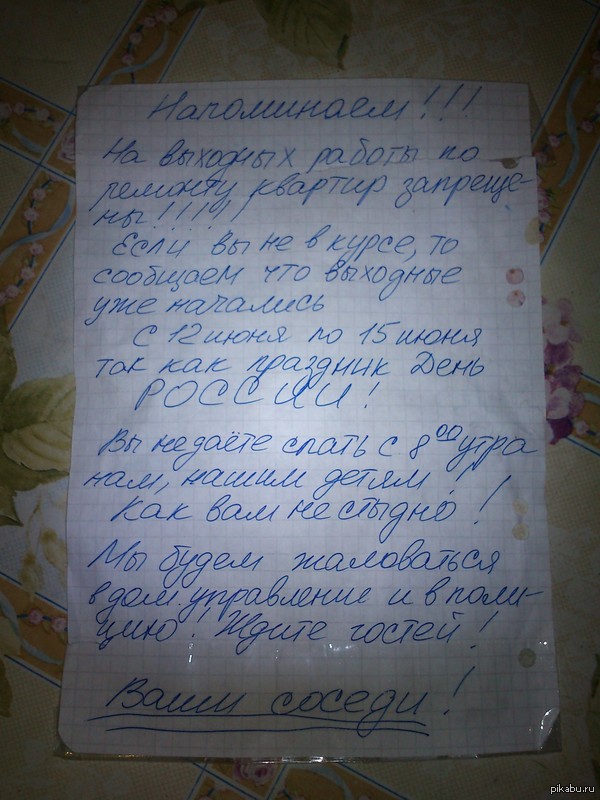 Напоминаем!!!
На выходных работы по
ремонту квартир запреще-
ны!!!!!!
Если вы не в курсе, то
сообщаем что выходные
уже начались
с 12 июня по 15 июня
так как праздник День
РОССИИ!
Вы не даёте спать с 8⁰⁰ утра
нам, нашим детям!!
Как вам не стыдно!
Мы будем жаловаться
в дом. управление и в поли-
цию! Ждите гостей!
Ваши соседи!
pikabu.ru